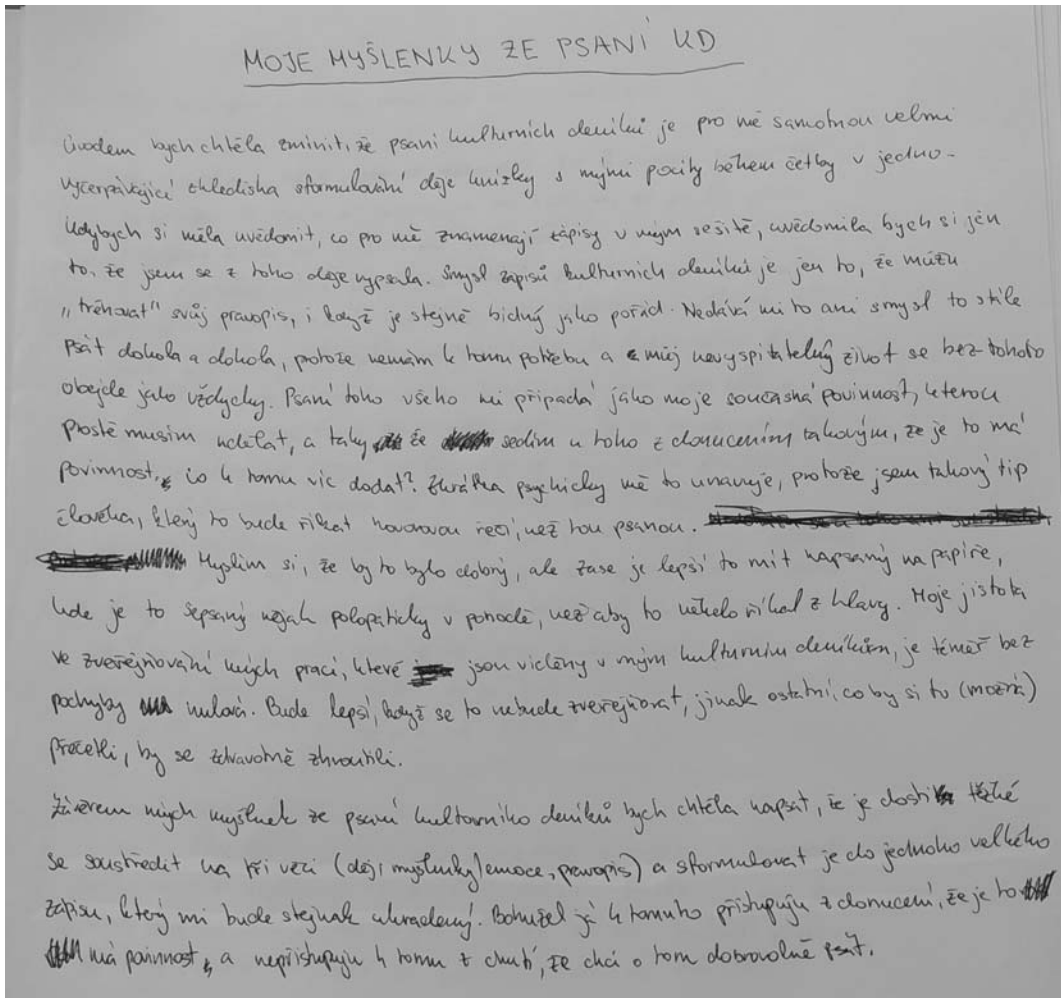 MOJE MYŠLENKY ZE PSANÍ KD
Úvodem bych chtěla zminit, že psaní kulturních deníků je pro mě samotnou velmi
vyčerpávající zhlediska sformulování děje knížky s mými pocity během četby v jedno-
Kdybych si měla uvědomit, co pro mě znamenají zápisy v mým sešitě, uvědomila bych si jen
to, že jsem se z toho děje vypsala. Smysl zápisů kulturních deníků je jen to, že můžu
"trénovat" svůj pravopis, i když je stejně bídný jako pořád. Nedává mi to ani smysl to stále
psát dokola a dokola, protože nemám k tomu potřebu a můj nevyspitatelný život se bez tohoto
obejde jako vždycky. Psaní toho všeho mi připadá jako moje současná povinnost, kterou
prostě musím udělat, a taky že sedím u toho z donucením takovým, že je to má
povinnost, co k tomu víc dodat? Zkrátka psychicky mě to unavuje, protože jsem takový tip
člověka, který to bude říkat hovorovou řečí, než tou psanou.
Myslím si, že by to bylo dobrý, ale zase je lepší to mít napsaný na papíře,
kde je to sepsaný nějak polopaticky v pohodě, než aby to někdo říkal z hlavy. Moje jistota
ve zveřejňování mých prací, které jsou viděny v mým kulturním deníkům, je téměř bez
pochyby nulová. Bude lepší, když se to nebude zveřejňovat, jinak ostatní, co by si to (možná)
přečetli, by se zdravotně zhroutili.
Závěrem mých myšlenek ze psaní kulturního deníků bych chtěla napsat, že je dosti těžké
se soustředit na tři věci (děj, myšlenky/emoce, pravopis) a sformulovat je do jednoho velkého
zápisu, který mi bude stejnak ukradený. Bohužel já k tomuto přistupuju z donucení, že je to
má povinnost, a nepřistupuju k tomu z chutí, že chci o tom dobrovolně psát.